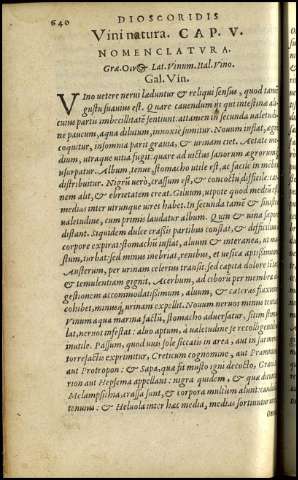 640 DIOSCORIDIS
Vini natura. CAP. V.
NOMENCLATVRA.
Græ. Lat. Vinum. Ital. Vino.
Gal. Vin.
VIno vetere nervi læduntur & reliqui sensus, quod tamē
gustu suavius est. Quare cavendum ijs qui intestina ali
cuius partis imbecillitatē sentiunt: attamen in secunda valetudi-
ne paucum, aqua dilutum, innoxiè sumitur. Novum inflat, ægrè
coquitur, insomnia parit gravia, & urinam ciet. Aetate me
dium, utraque vitia fugit. quare ad victus sanorum ægrorumq;
usurpatur. Album, tenue, stomacho utile est, ac facile in mēbra
distribuitur. Nigrū verò, crassum est, & concoctu difficile, car
nem alit, & ebrietatem creat. Gilvum, utpote quod medio est,
medias inter utrunque vires habet. In secunda tamē & sinistra
valetudine, cum primis laudatur album. Quin & vina sapore
distant. Siquidem dulce crassis partibus constat, & difficilius
corpore expirat: stomachū inflat, alvum & interanea, ut mu
stum, turbat: sed minus inebriat, renibus, et vesicæ aptissimum.
Austerum, per urinam celerius transit. sed capita dolore
& temulentiam gignit. Acerbum, ad ciborū per membra di-
gestionem accommodatissimum, alvum, & cæteras fluxiones
cohibet, minusq; urinam expellit. Novum nervos minus tentat.
Vinum aqua marina factū, stomacho adversatur, sitim stimu
lat, nervos infestat: alvo aptum, à valetudine se recolligentibus
inutile. Passum, quod uvis sole siccatis in area, aut in sarmentis
torrefactis exprimitur, Creticum cognomine, aut Pramnium,
aut Protropon: & Sapa, quæ fit musto igni decocto,
rion aut Hepsema appellant: nigra quidem, & quæ dicuntur
Melampsithia, crassa sunt, & corpora multum alunt: candida
tenuius: & Helvola inter hæc media, medias sortiuntur